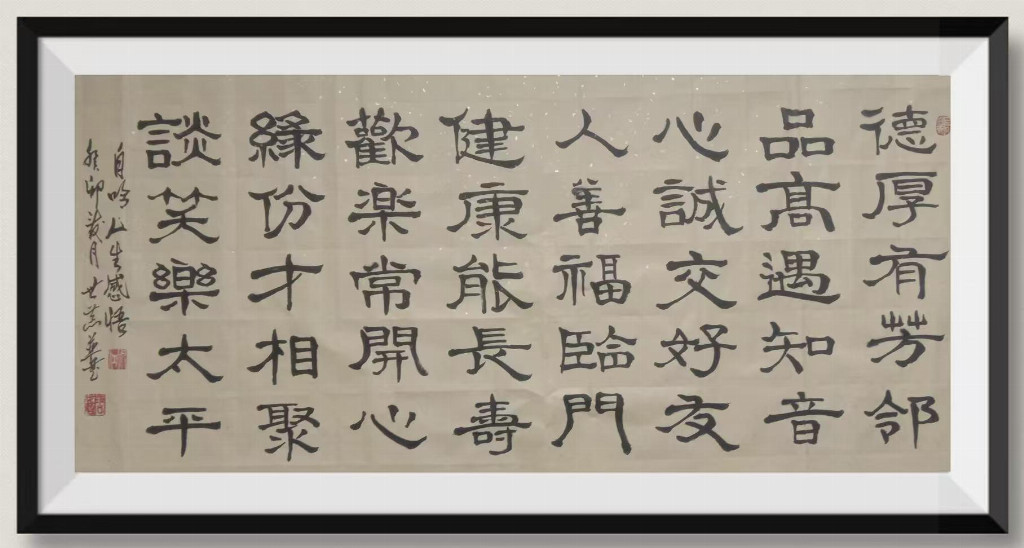 德厚有芳邻
品高遇知音
心誠交好友
人善福臨門
健康能長壽
歡楽常開心
緣份才相聚
談笑樂太平
自吟人生感悟
癸卯歲月世